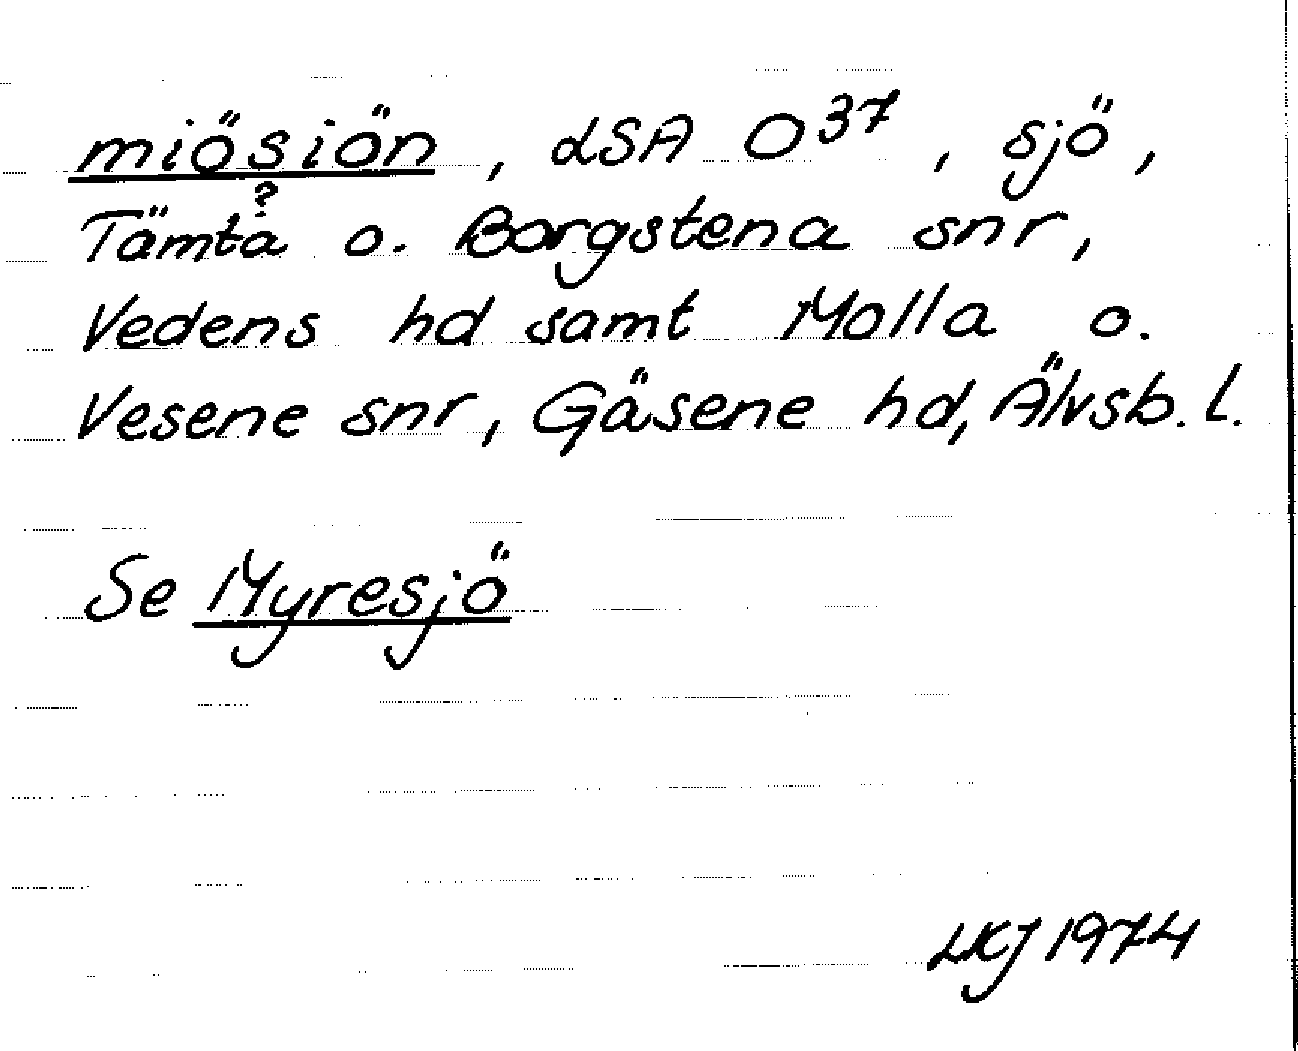 miösiön, LSA O37, sjö,
?
Tämta o. Borgstena snr,
Vedens hd samt Molla o.
Vesene snr, Gäsene hd, Älvsb. l.
Se Myresjö
LKJ 1974